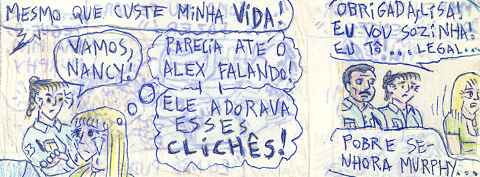 MESMO QUE CUSTE MINHA VIDA!
VAMOS,
NANCY!
PARECIA ATÉ O
ALEX FALANDO!
ELE ADORAVA
ESSES
CLICHÊS!
OBRIGADA, LISA!
EU VOU SOZINHA!
EU TÔ... LEGAL...
POBRE SE-
NHORA MURPHY...